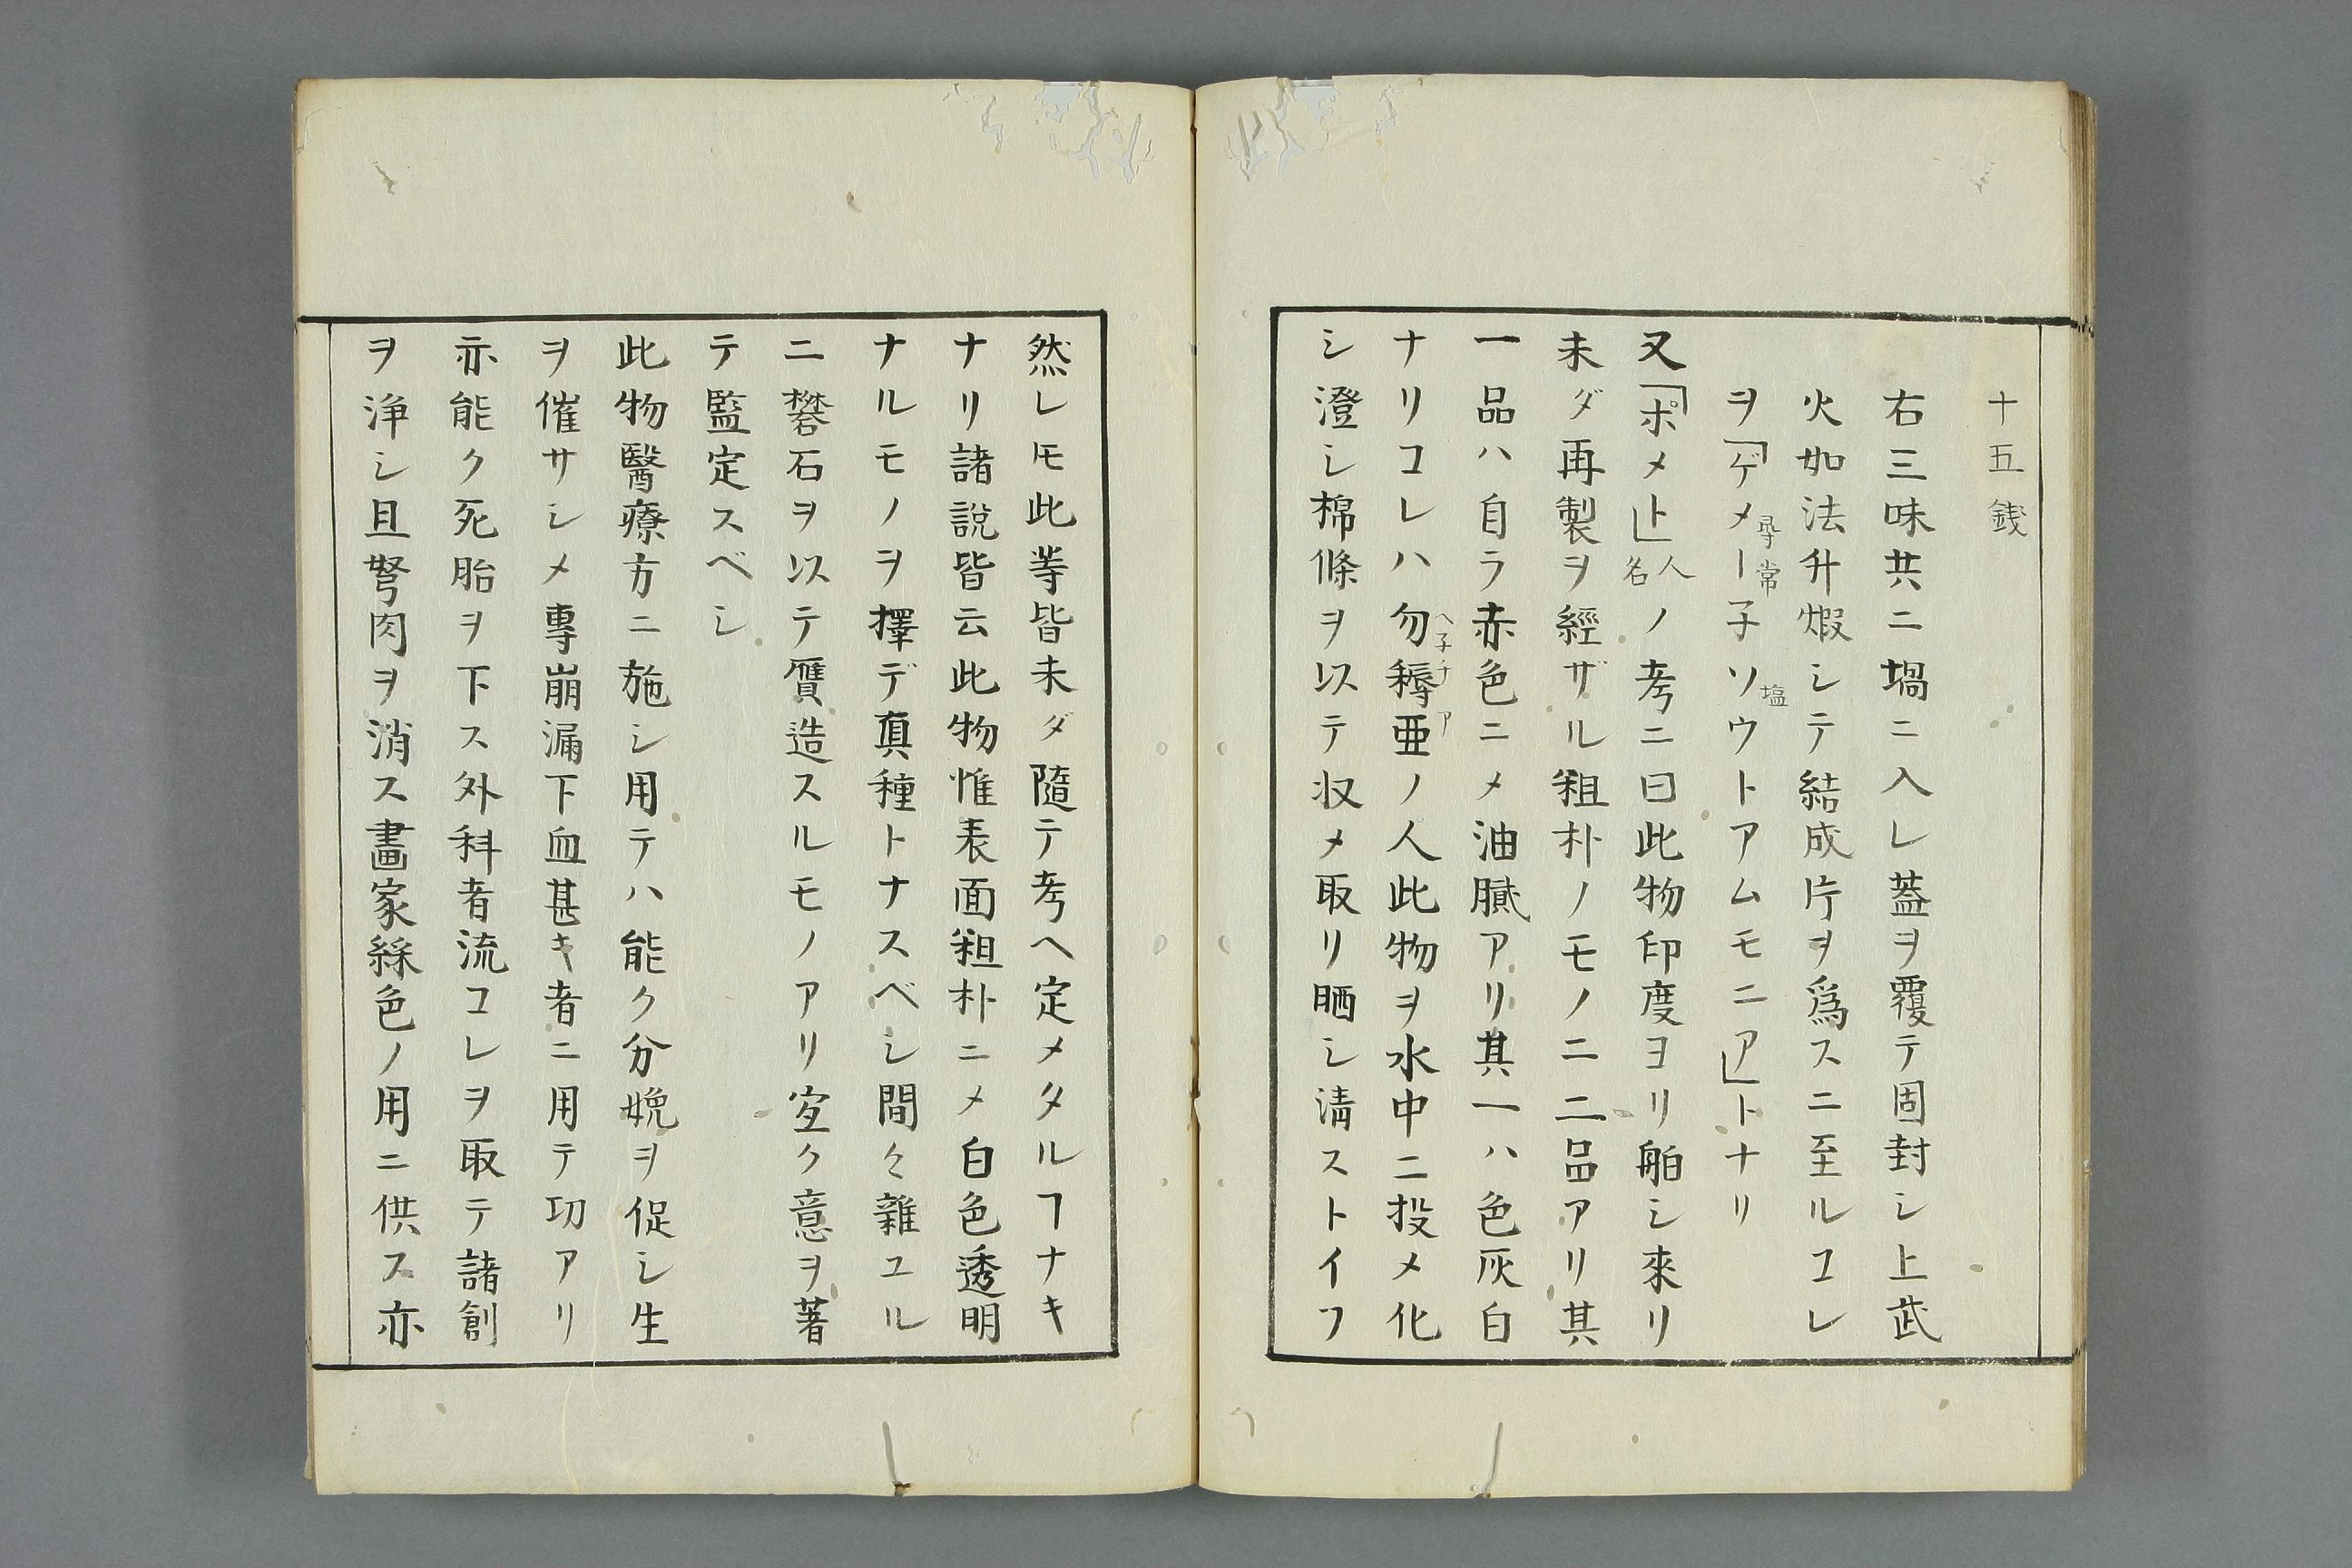 十五銭
右三味共ニ堝ニ入レ蓋ヲ覆テ固封シ上武
火如法升煆シテ結成片ヲ爲スニ至ルコレ
ヲ「ゲメー子ソウトアムモニア」トナリ
尋常
塩
又「ポメト」人名ノ考ニ曰此物印度ヨリ舶シ來リ
未ダ再製ヲ經ザル粗朴ノモノニ二品アリ其
一品ハ自ラ赤色ニメ油膩アリ其一ハ色灰白
ナリコレハ勿搙亜ノ人此物ヲ水中ニ投メ化
ヘ子チア
シ澄シ棉條ヲ以テ収メ取リ晒シ淸ストイフ
然レ𪜈此等皆未ダ隨テ考ヘ定メタルヿナキ
ナリ諸說皆云此物惟表面粗朴ニメ白色透明
ナルモノヲ擇デ真種トナスベシ間々雜ユル
ニ礬石ヲ以テ贋造スルモノアリ宜ク意ヲ著
テ監定スベシ
此物醫療方ニ施シ用テハ能ク分娩ヲ促シ生
ヲ催サシメ專崩漏下血甚キ者ニ用テ切アリ
亦能ク死胎ヲ下ス外科者流コレヲ取テ諸創
ヲ浄シ且弩肉ヲ消ス畫家綵色ノ用ニ供ス亦